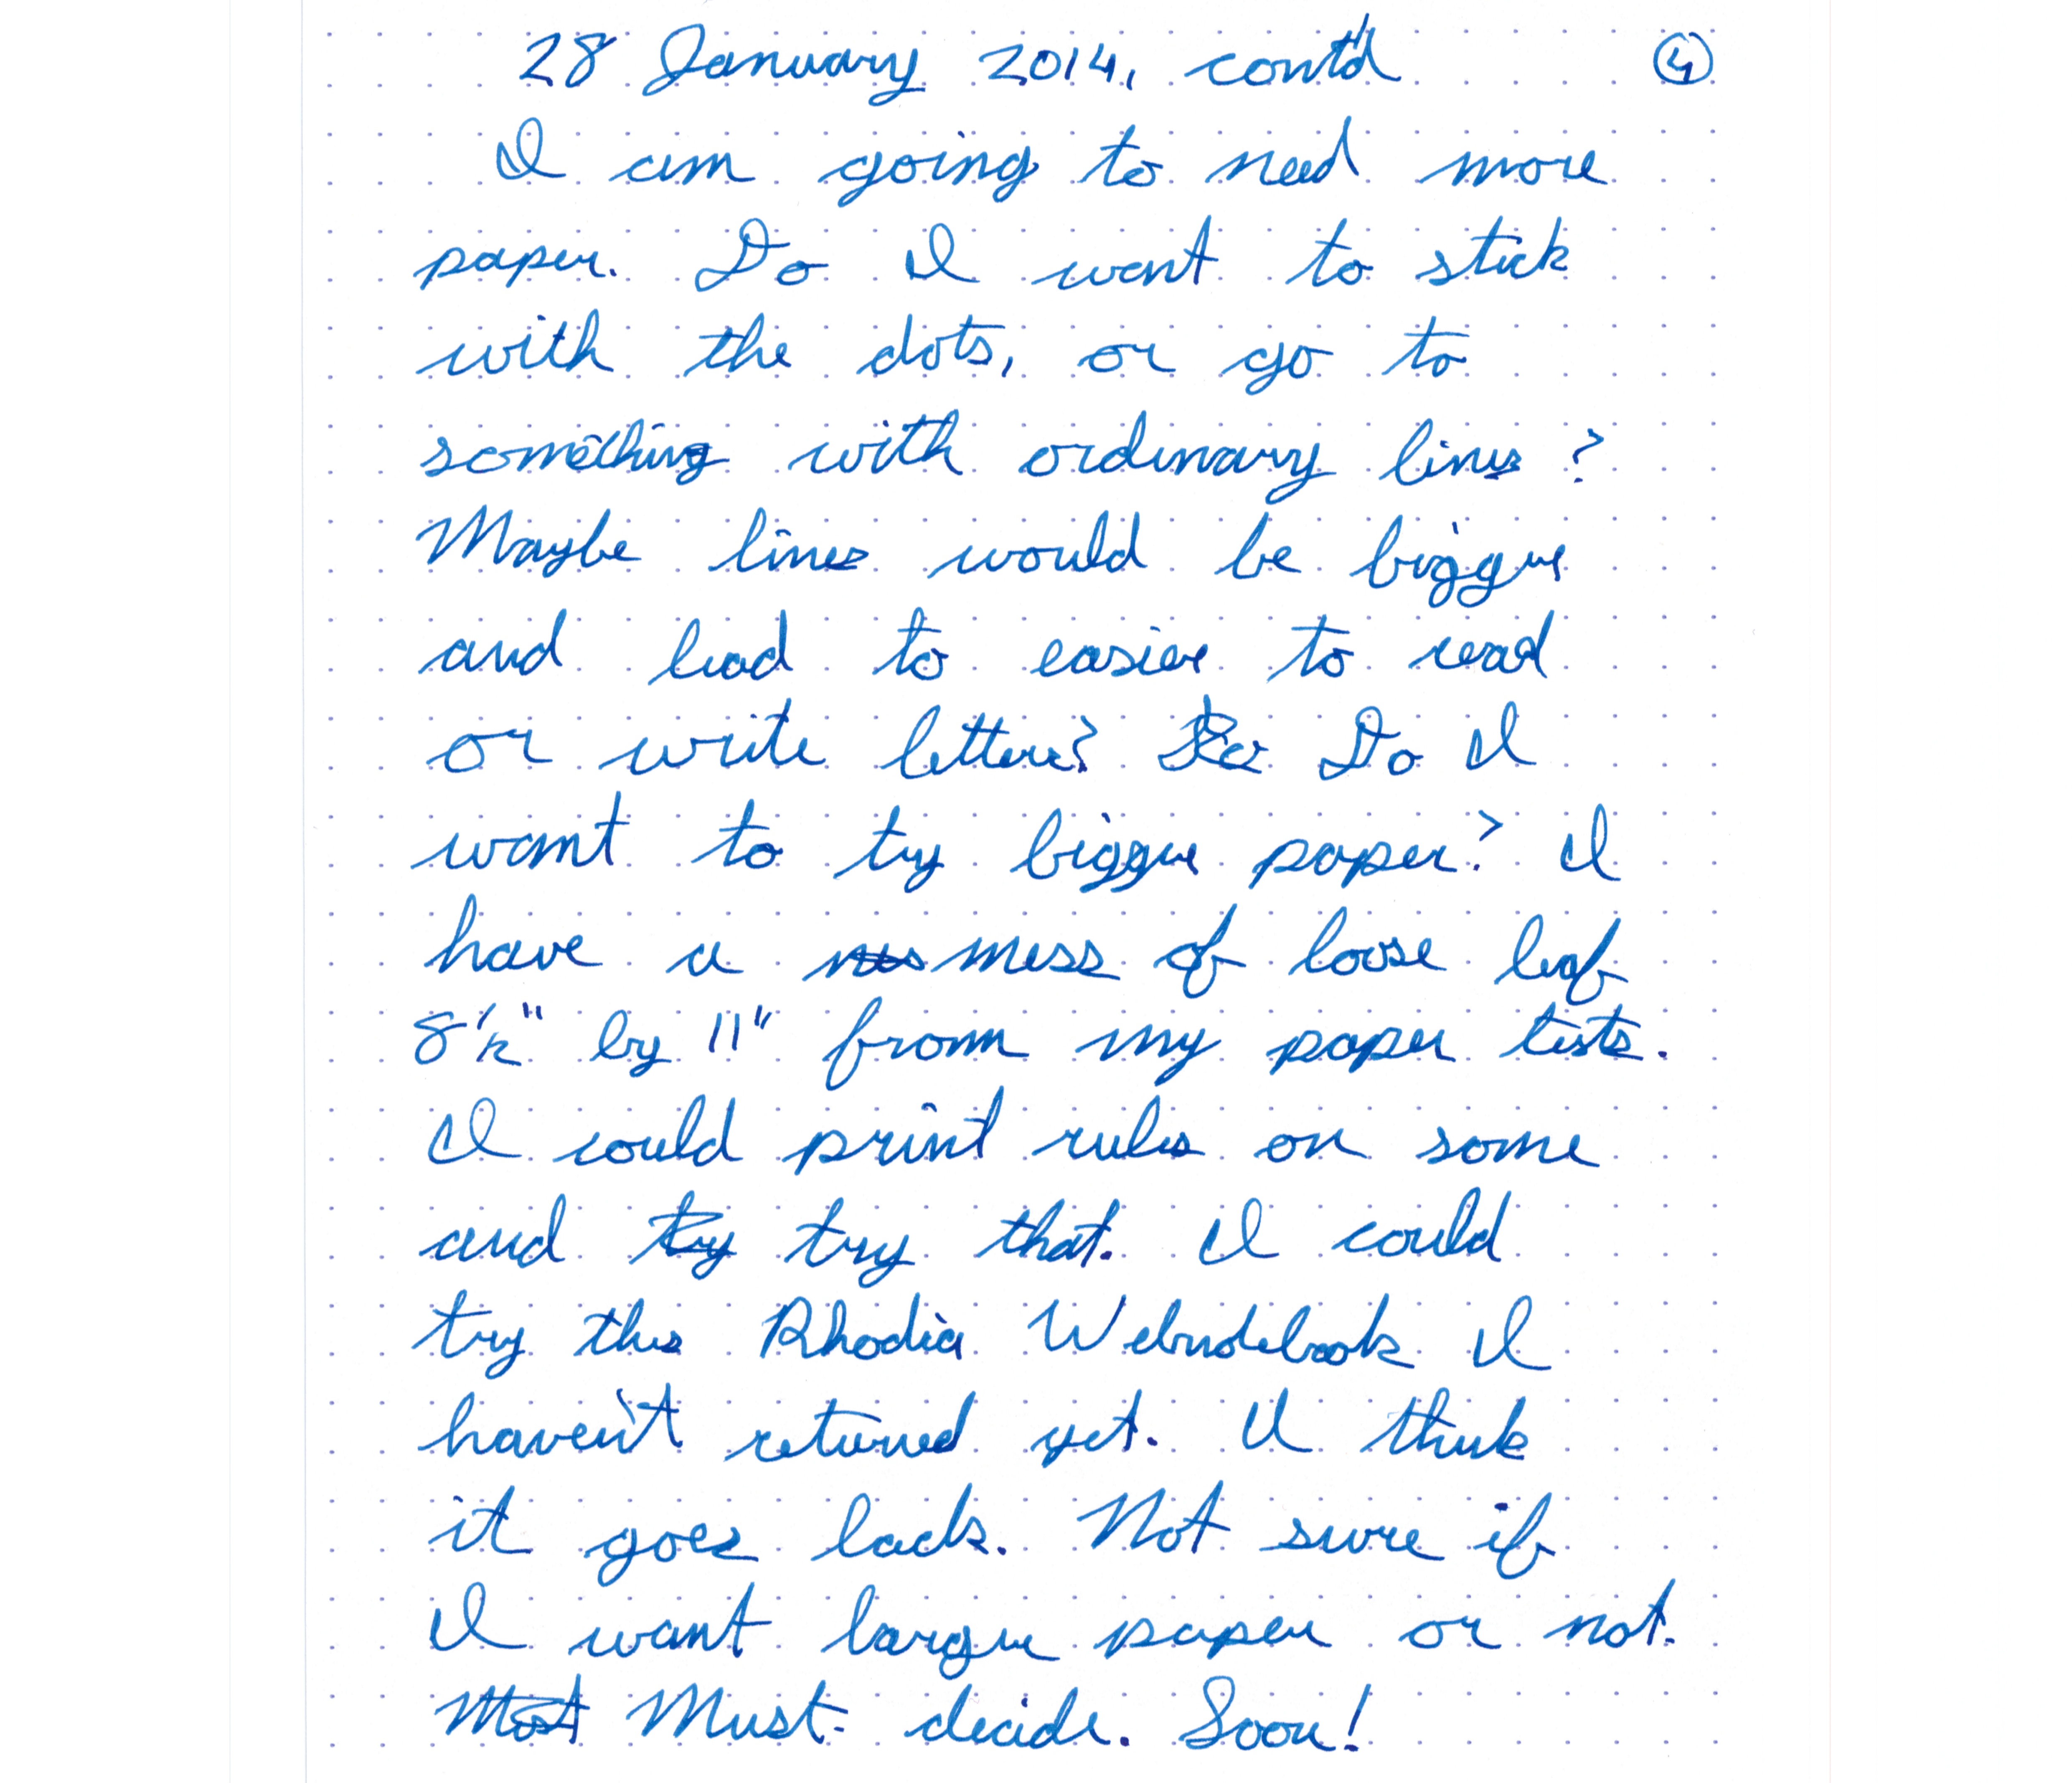 28 January 2014, cont'd ④
I am going to need more
paper. Do I want to stick
with the dots, or go to
something with ordinary lines?
Maybe lines would be bigger
and lead to easier to read
or write letters? Do I
want to try bigger paper? I
have a mess of loose leaf
8 1/2" by 11" from my paper tests.
I could print rules on some
and try try that. I could
try this Rhodia Webnotebook I
haven't returned yet. I think
it goes back. Not sure if
I want larger paper or not.
Most Must decide. Soon!